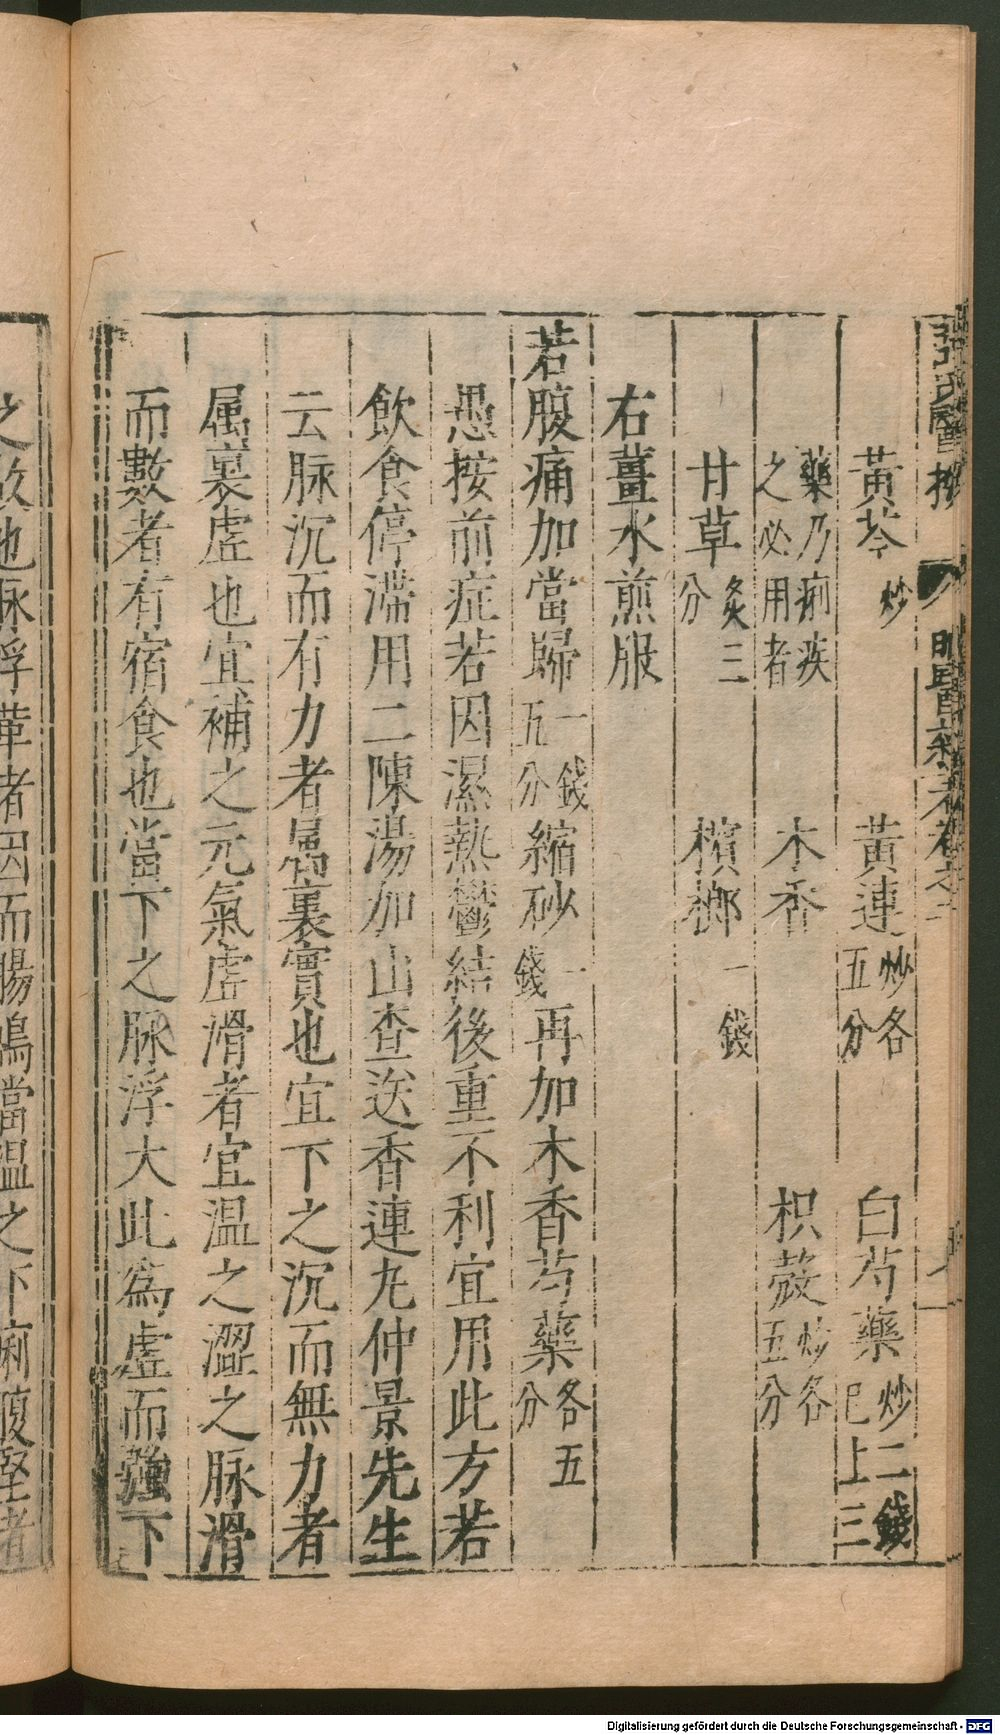 黃芩炒　黃連炒各五分　白芍藥炒二錢已上三
藥乃痢疾之必用者　木香　枳殼炒各五分
甘草炙三分　檳榔一錢
右薑水煎服
若腹痛加當歸一錢五分縮砂一錢再加木香芍藥各五分
愚按前症若因濕熱鬱結後重不利宜用此方若
飲食停滯用二陳湯加山查送香連丸仲景先生
云脉沉而有力者屬裏實也宜下之沉而無力者
属裏虛也宜補之元氣虛滑者宜溫之澀之脉滑
而數者有宿食也當下之脉浮大此為虛而強下
之故也脉浮革者因而腸鳴當溫之下痢腹堅者
Digitalisierung gefördert durch die Deutsche Forschungsgemeinschaft - DFG